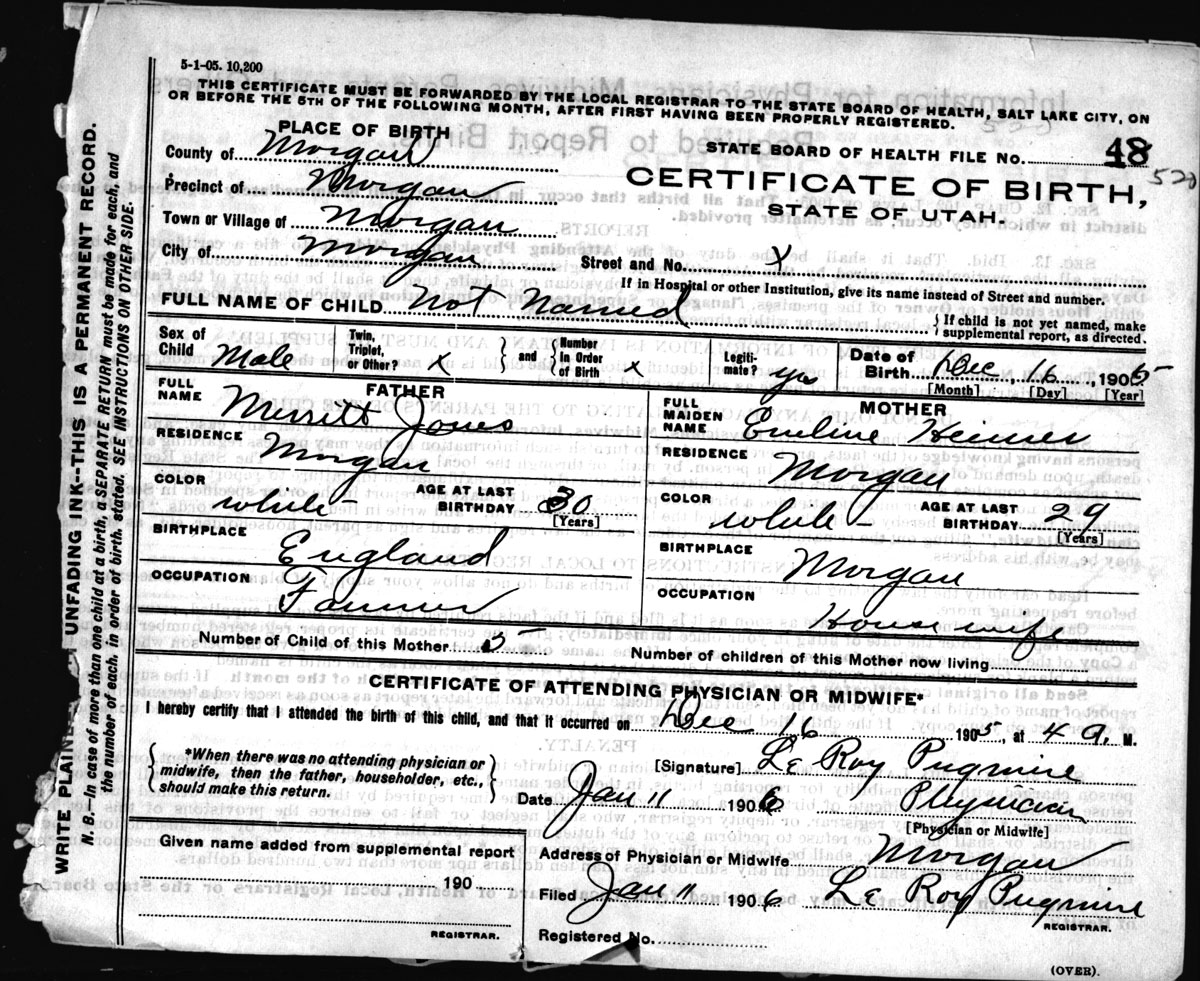 5-1-05. 10,200
THIS CERTIFICATE MUST BE FORWARDED BY THE LOCAL REGISTRAR TO THE STATE BOARD OF HEALTH, SALT LAKE CITY, ON
OR BEFORE THE 5TH OF THE FOLLOWING MONTH, AFTER FIRST HAVING BEEN PROPERLY REGISTERED.
PLACE OF BIRTH
STATE BOARD OF HEALTH FILE NO. 48
520
County of Morgan
CERTIFICATE OF BIRTH,
Precinct of Morgan
STATE OF UTAH.
Town or Village of Morgan
City of Morgan
Street and No. X
If in Hospital or other Institution, give its name instead of Street and number.
FULL NAME OF CHILD not named
{ If child is not yet named, make
supplemental report, as directed.
Sex of Child Male
Twin, Triplet, or Other? x
} and { Number In Order of Birth x
Legiti-mate? yes
Date of Birth Dec, 16, 1905
[Month] [Day] [Year]
FATHER
FULL NAME Merritt Jones
RESIDENCE Morgan
COLOR white
AGE AT LAST BIRTHDAY 30
[Years]
BIRTHPLACE England
OCCUPATION Farmer
MOTHER
FULL MAIDEN NAME Emeline Heiner
RESIDENCE Morgan
COLOR white
AGE AT LAST BIRTHDAY 29
[Years]
BIRTHPLACE Morgan
OCCUPATION House wife
Number of Child of this Mother 5
Number of children of this Mother now living
CERTIFICATE OF ATTENDING PHYSICIAN OR MIDWIFE*
I hereby certify that I attended the birth of this child, and that it occurred on Dec 16 1905, at 4 a. M.
{ *When there was no attending physician or
midwife, then the father, householder, etc.,
should make this return. }
[Signature] Le Roy Pugmire
Date Jan 11 1906 Physician
[Physician or Midwife]
Given name added from supplemental report
190
REGISTRAR.
Address of Physician or Midwife Morgan
Filed Jan 11 1906 Le Roy Pugmire
REGISTRAR.
Registered No.
(OVER).
UNFADING INK--THIS IS A PERMANENT RECORD.
N. B.--In case of more than one child at a birth, a SEPARATE RETURN must be made for each, and
the number of each, in order of birth, stated. SEE INSTRUCTIONS ON OTHER SIDE.